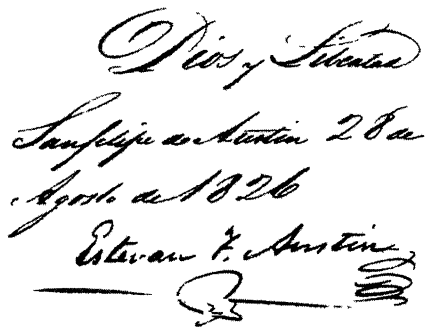 Dios y Libertad
San Felipe de Austin 28 de
Agosto de 1826
Estevan F. Austin